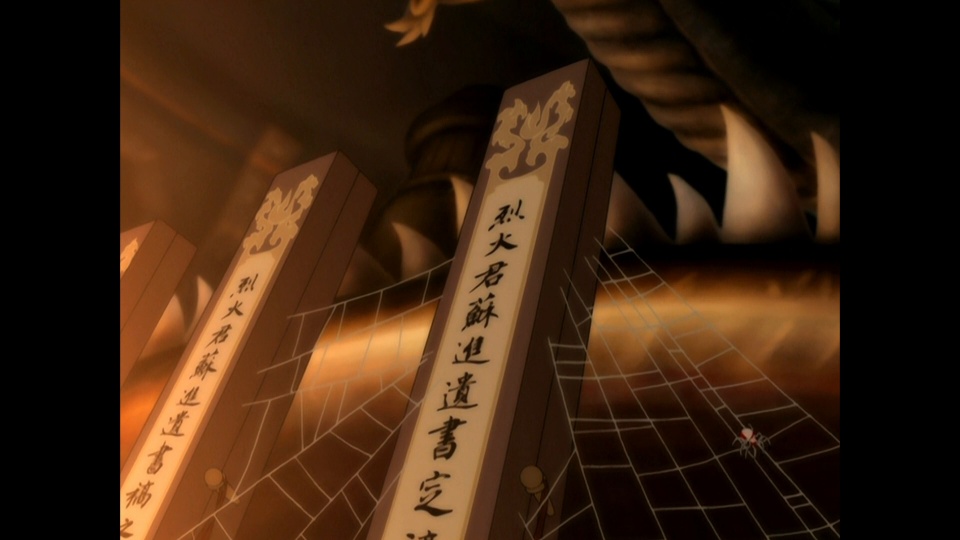 烈火君蘇進遺書定
烈火君蘇進遺書稿之